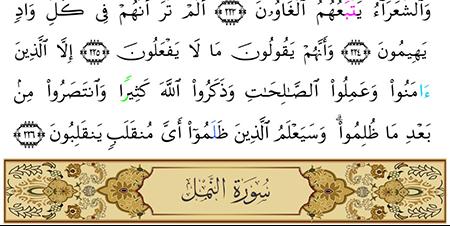 وَالشُّعَرَآءُ يَتْبَعُهُمُ الْغَاوُۥنَ ٢٢٣ أَلَمْ تَرَ أَنَّهُمْ فِي كُلِّ وَادٍ
يَهِيمُونَ ٢٢٤ وَأَنَّهُمْ يَقُولُونَ مَا لَا يَفْعَلُونَ ٢٢٥ إِلَّا الَّذِينَ
ءَامَنُواْ وَعَمِلُواْ الصَّٰلِحَٰتِ وَذَكَرُواْ اللَّهَ كَثِيرًا وَانتَصَرُواْ مِنۢ
بَعْدِ مَا ظُلِمُواْۗ وَسَيَعْلَمُ الَّذِينَ ظَلَمُوٓاْ أَيَّ مُنقَلَبٍ يَنقَلِبُونَ ٢٢٦
سُورَةُ النَّمْلِ